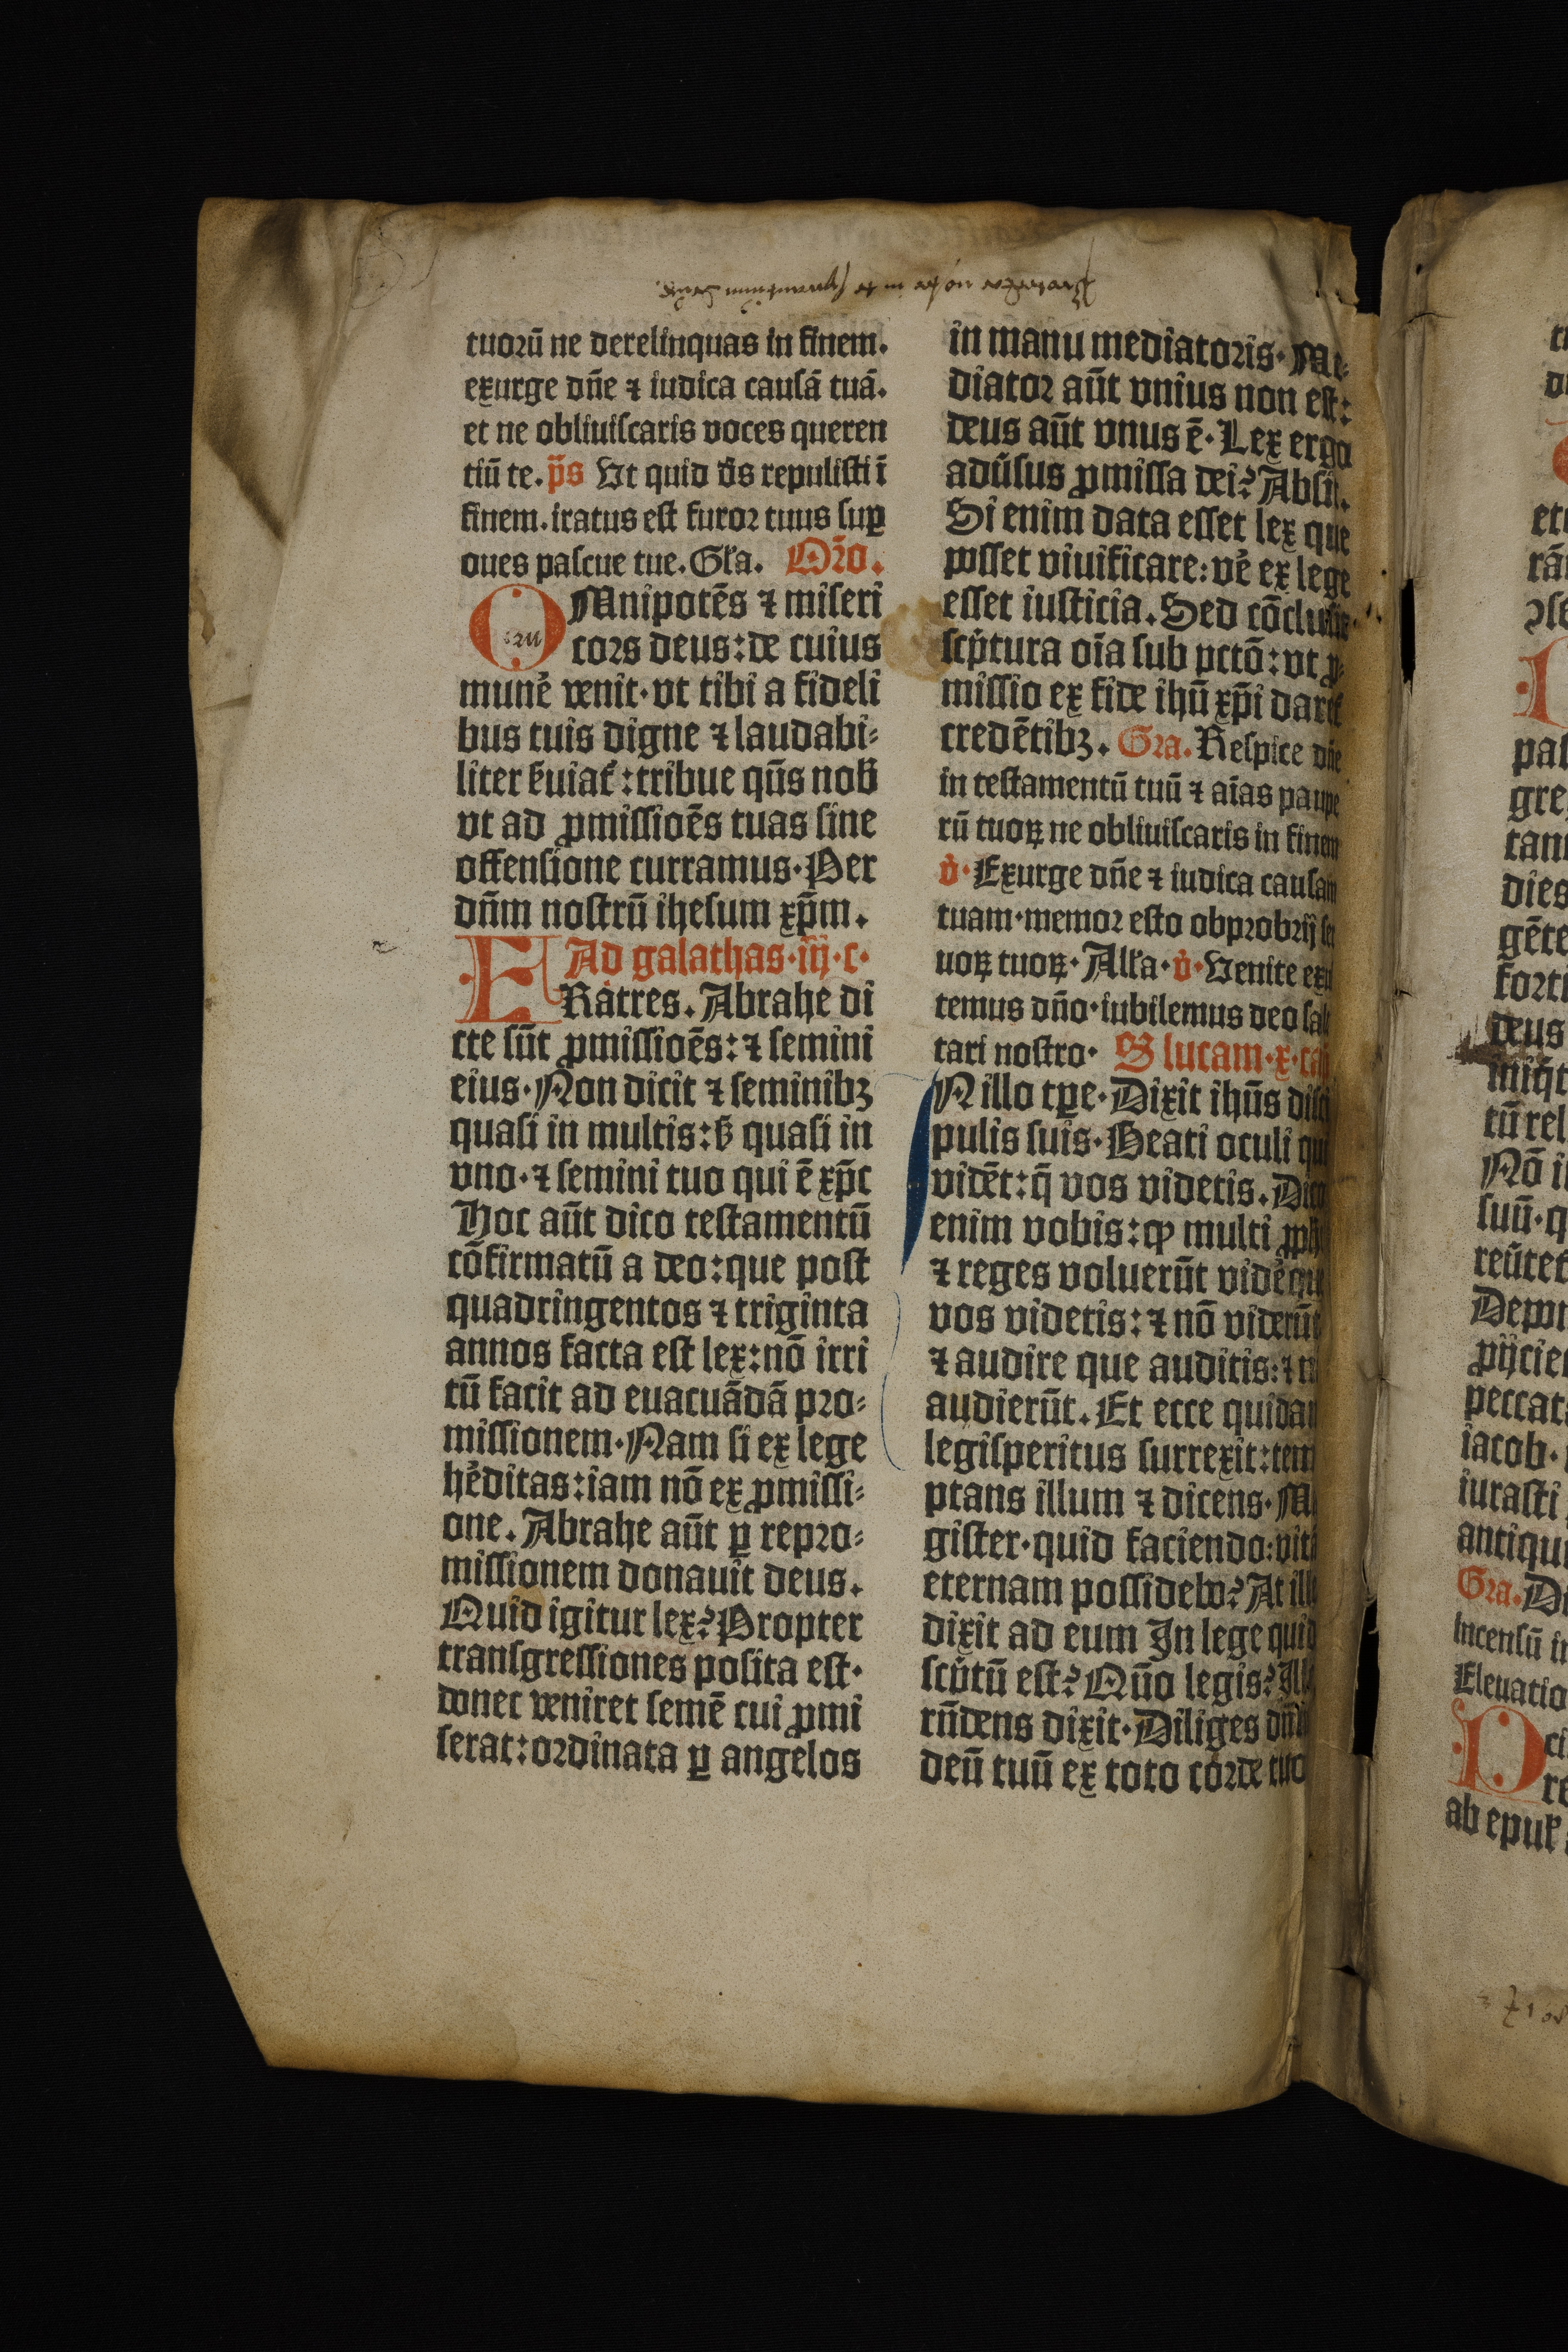 tuoꝛū ne derelinquas in finem.
exurge dñe ⁊ iudica causā tuā.
et ne obliuiscaris voces queren
tiū te. p̄s Vt quid d̄s repulisti ī
finem. iratus est furoꝛ tuus suꝑ
oues pascue tue. Gl̄a. Oꝛ̄o.
OMnipotēs ⁊ miseri
coꝛs deus: de cuius
mune᷑ venit· vt tibi a fideli
bus tuis digne ⁊ laudabi⸗
liter ẜuiat᷑: tribue qūs nob̄
vt ad ꝓmissioēs tuas sine
offensione curramus· Per
dn̄m nostrū ihesum xp̄m.
Ad galathas· iij· c·
FRatres. Abrahe di
cte sūt ꝓmissioēs: ⁊ semini
eius· Non dicit ⁊ seminibꝫ
quasi in multis: ẜ quasi in
vno· ⁊ semini tuo qui ē xp̄c
Hoc aūt dico testamentū
cōfirmatū a deo: que post
quadringentos ⁊ triginta
annos facta est lex: nō irri
tū facit ad euacuādā pꝛo⸗
missionem· Nam si ex lege
he᷑ditas: iam nō ex ꝓmissi⸗
one. Abrahe aūt ꝑ repꝛo⸗
missionem donauit deus.
Quid igitur lex? Propter
transgressiones posita est·
donec veniret semē cui ꝓmi
serat: oꝛdinata ꝑ angelos
in manu mediatoꝛis· Me⸗
diatoꝛ aūt vnius non est:
deus aūt vnus ē· Lex ergo
adūsus ꝓmissa dei? Absit.
Si enim data esset lex que
posset viuificare: ve᷑ ex lege
esset iusticia. Sed cōclusit
scp̄tura oīa sub pctō: vt ꝓ⸗
missio ex fide ihū xp̄i daret᷑
credētibꝫ. Gꝛa. Respice dñe
in testamentū tuū ⁊ aīas paupe
rū tuoꝝ ne obliuiscaris in finem
v̇· Exurge dñe ⁊ iudica causam
tuam· memoꝛ esto obpꝛobꝛij ser
uoꝝ tuoꝝ· Alľa· v̇· Venite exul
temus dño· iubilemus deo salu
tari nostro· S lucam· x· ca
N illo tꝑe· Dixit ihūs disci
pulis suis· Beati oculi qui
vidēt: q̄ vos videtis. Dico
enim vobis: ꝙ multi ꝓphe
⁊ reges voluerūt vide᷑ que
vos videtis: ⁊ nō viderūt
⁊ audire que auditis: ⁊ n
audierūt. Et ecce quidam
legisperitus surrexit: tem
ptans illum ⁊ dicens· Ma
gister· quid faciendo: vitā
eternam possidebo? At ille
dixit ad eum In lege quid
scp̄tū est? Qūo legis? Ille
rn̄dens dixit· Diliges dn̄m
deū tuū ex toto coꝛde tuo